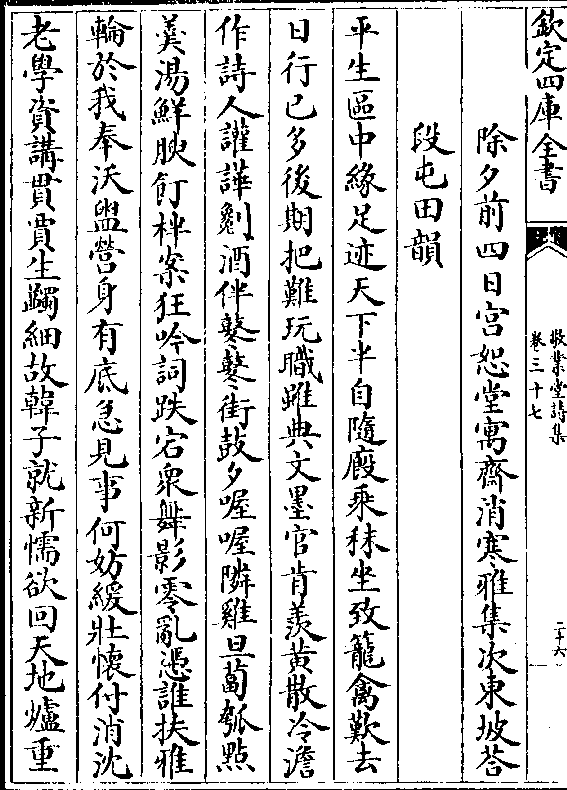 欽定四庫全書
敬業堂詩集
卷三十七
二十六
除夕前四日宫恕堂寓齋消寒雅集次東坡荅
段屯田韻
平生區中緣足迹天下半自隨廄乗秣坐致籠禽歎去
日行已多後期把難玩職雖典文墨官肯羨黄散冷澹
作詩人讙譁劇酒伴鼕鼕街鼓夕喔喔隣雞旦蔔瓠㸃
羮湯鮮腴飣柈案狂吟詞跌宕衆舞影零亂憑誰扶雅
輪於我奉沃盥營身有底急見事何妨緩壯懷付消沈
老學資講貫賁生蠲細故韓子就新懦欲回天地爐重